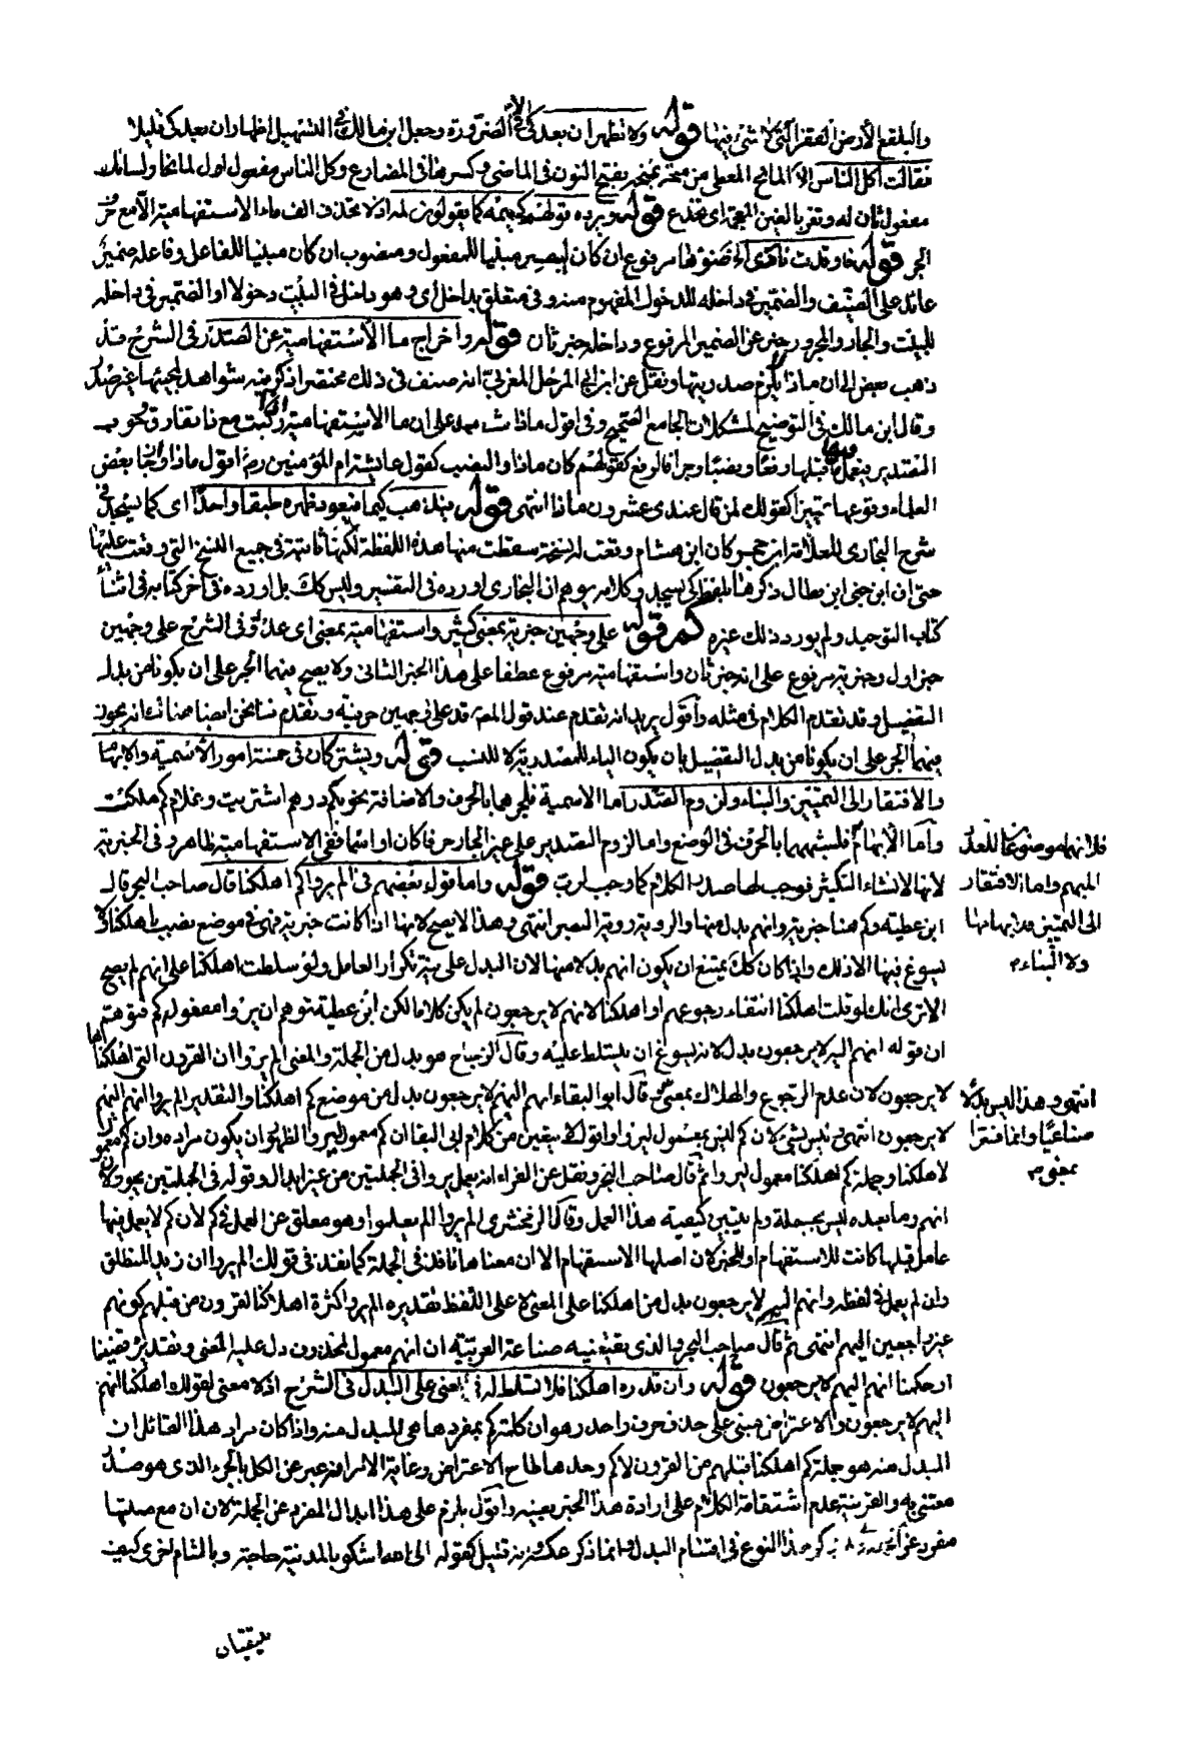 والبلقع الأرض القفر التى لا شىء فيها قوله ولا تظهر ان بعد كى الا فى الضرورة وجعل ابن مالك فى التسهيل اظهار ان بعد كى قليلا
فقالت أكل الناس الا المانح المعطى من منحه يمنحه بفتح النون فى الماضى وكسرها فى المضارع وكل الناس مفعول اول لمانحا ولسانك
مفعول ثان له وتغر بالغين المعجمة اى تخدع قوله ويرده قولهم كيمه كما يقولون لمه اذ لا تحذف الف ما الاستفهامية الا مع حرف
الجر قوله مرفوع ان كان ليبصر مبنيا للمفعول ومنصوب ان كان مبنيا للفاعل وفاعله ضمير
عائد على الضيف والضمير فى داخله للدخول المفهوم منه وفى متعلق بداخل أى وهو داخل فى البيت دخولا او الضمير فى داخله
للبيت والجار والمجرور خبر عن الضمير المرفوع وداخله خبر ثان قوله واخراج ما الاستفهامية عن الصدر فى الشرح قد
ذهب بعض الى ان ماذا لا يلزم صدريتها ونقل عن ابن ابى المرحل المغربى انه صنف فى ذلك مختصرا ذكر فيه شواهد لمجيئها غير صدر
وقال ابن مالك فى التوضيح لمشكلات الجامع الصحيح وفى اقول ماذا شاهد على ان ما الاستفهامية اذا ركبت مع ذا تفارق وجوب
التصدير فيعمل فيها ما قبلها رفعا ونصبا وجرا فالرفع كقولهم كان ماذا والنصب كقول عائشة ام المؤمنين رض اقول ماذا وأجاز بعض
العلماء وقوعها تمييزا كقولك لمن قال عندى عشرون ماذا انتهى قوله فيذهب كيما فيعود ظهره طبقا واحدا اى كما يسجد فى
شرح البخارى للعلامة ابن حجر كان ابن هشام وقعت له نسخة سقطت منها هذه اللفظة لكنها ثابتة فى جميع النسخ التى وقفت عليها
حتى ان ابن بطال ذكرها بلفظ كى يسجد وكلامه يوهم ان البخارى اورده فى التفسير وليس كك بل اورده فى آخر كتابه فى اثناء
كتاب التوحيد ولم يورد ذلك غيره كم قوله على وجهين خبرية بمعنى كثير واستفهامية بمعنى اى عدد فى الشرح على وجهين
خبر اول وخبرية مرفوع على انه خبر ثان واستفهامية مرفوع عطفا على هذا الخبر الثانى ولا يصح فيهما الجر على ان يكونا من بدل
التفصيل وقد تقدم الكلام فى مثله وأقول يريد انه تقدم عند قول المص قد على وجهين حرفية وتقدم منا نحن ايضا هناك انه يجوز
فيهما الجر على ان يكونا من بدل التفصيل بان يكون الياء للمصدرية لا للنسب قوله ويشتركان فى خمسة امور الاسمية والابهام
والافتقار الى التمييز والبناء ولزوم الصدر اما الاسمية فلجرهما بالحرف والاضافة نحو بكم درهم اشتريت وغلام كم ملكت
وأما الابهام فلشبههما بالحرف فى الوضع واما لزوم التصدير على غير الجار حرفا كان او اسما ففى الاستفهامية ظاهر وفى الخبرية
لانها لانشاء التكثير فوجب لها صدر الكلام كما وجب لرب قوله واما قول بعضهم فى الم يروا كم اهلكنا قال صاحب البحر قال
ابن عطية وكم هنا خبرية وانهم بدل منها والرؤية رؤية البصر انتهى وهذا لا يصح لانها اذا كانت خبرية فهى فى موضع نصب باهلكنا ولا
يسوغ فيها الا ذلك واذا كان كك يمتنع ان يكون انهم بدلا منها لان البدل على نية تكرار العامل ولو سلطت اهلكنا على انهم لم يصح
الا ترى انك لو قلت اهلكنا انتفاء رجوعهم او اهلكنا لانهم لا يرجعون لم يكن كلاما لكن ابن عطية توهم ان يروا مفعوله كم فتوهم
ان قوله انهم اليهم لا يرجعون بدل لانه يسوغ ان يتسلط عليه وقال الزجاج هو بدل من الجملة والمعنى الم يروا ان القرون التى اهلكناها
لا يرجعون لان عدم الرجوع والهلاك بمعنى وقال ابو البقاء انهم اليهم لا يرجعون بدل من موضع كم اهلكنا والتقدير الم يروا انهم اليهم
لا يرجعون انتهى وليس بشىء لان كم ليس بمعمول ليروا من كلام ابى البقا ان كم معمول ليروا والظاهر ان يكون مراده وان كم معمول
لاهلكنا وجملة كم اهلكنا معمول ليروا ثم قال صاحب البحر ونقل عن الفراء انه يعمل يروا فى الجملتين من غير ابدال وقوله فى الجملتين تجوز لان
انهم وما بعده ليس بجملة ولم يبين كيفية هذا العمل وقال الزمخشرى الم يروا الم يعلموا وهو معلق عن العمل فى كم لان كم لا يعمل فيها
عامل قبلها كانت للاستفهام او للخبر لان اصلها الاستفهام الا ان معناها نافذ فى الجملة كما نفذ فى قولك الم يروا ان زيدا لمنطلق
وان لم يعمل فى لفظه وانهم اليهم لا يرجعون بدل من اهلكنا على المعنى لا على اللفظ تقديره الم يروا كثرة اهلاكنا القرون من قبلهم كونهم
غير راجعين اليهم انتهى ثم قال صاحب البحر والذى تقتضيه صناعة العربية ان انهم معمول لمحذوف دل عليه المعنى وتقديره قضينا
او حكمنا انهم اليهم لا يرجعون قوله وان قدره اهلكنا فلا تسلط له فى المعنى على البدل فى الشرح اذ لا معنى لقولك اهلكنا انهم
اليهم لا يرجعون والاعتراض مبنى على حذف حرف واحد وهو ان كلمة كم بمفردها هى المبدل منه واذا كان مراد هذا القائل ان
المبدل منه هو جملة كم اهلكنا قبلهم من القرون لا كم وحدها طاح الاعتراض وغاية الامر انه عبر عن الكل بالجزء الذى هو صدر
معتنى به والقرينة عدم استقامة الكلام على ارادة هذا الخبر بعينه واقول يلزم على هذا ابدال المفرد عن الجملة لان ان مع صلتها
مفرد هذا النوع فى اقسام البدل وانما ذكر عكسه قليل كقوله الى الله اشكو بالمدينة حاجة وبالشام اخرى كيف
فلانهما موضوعتا للعدد
المبهم واما الافتقار
الى التمييز فلابهامها
ولا البناء م
انتهى وهذا ليس بدلا
صناعيا وانما فسرا
يلتقيان